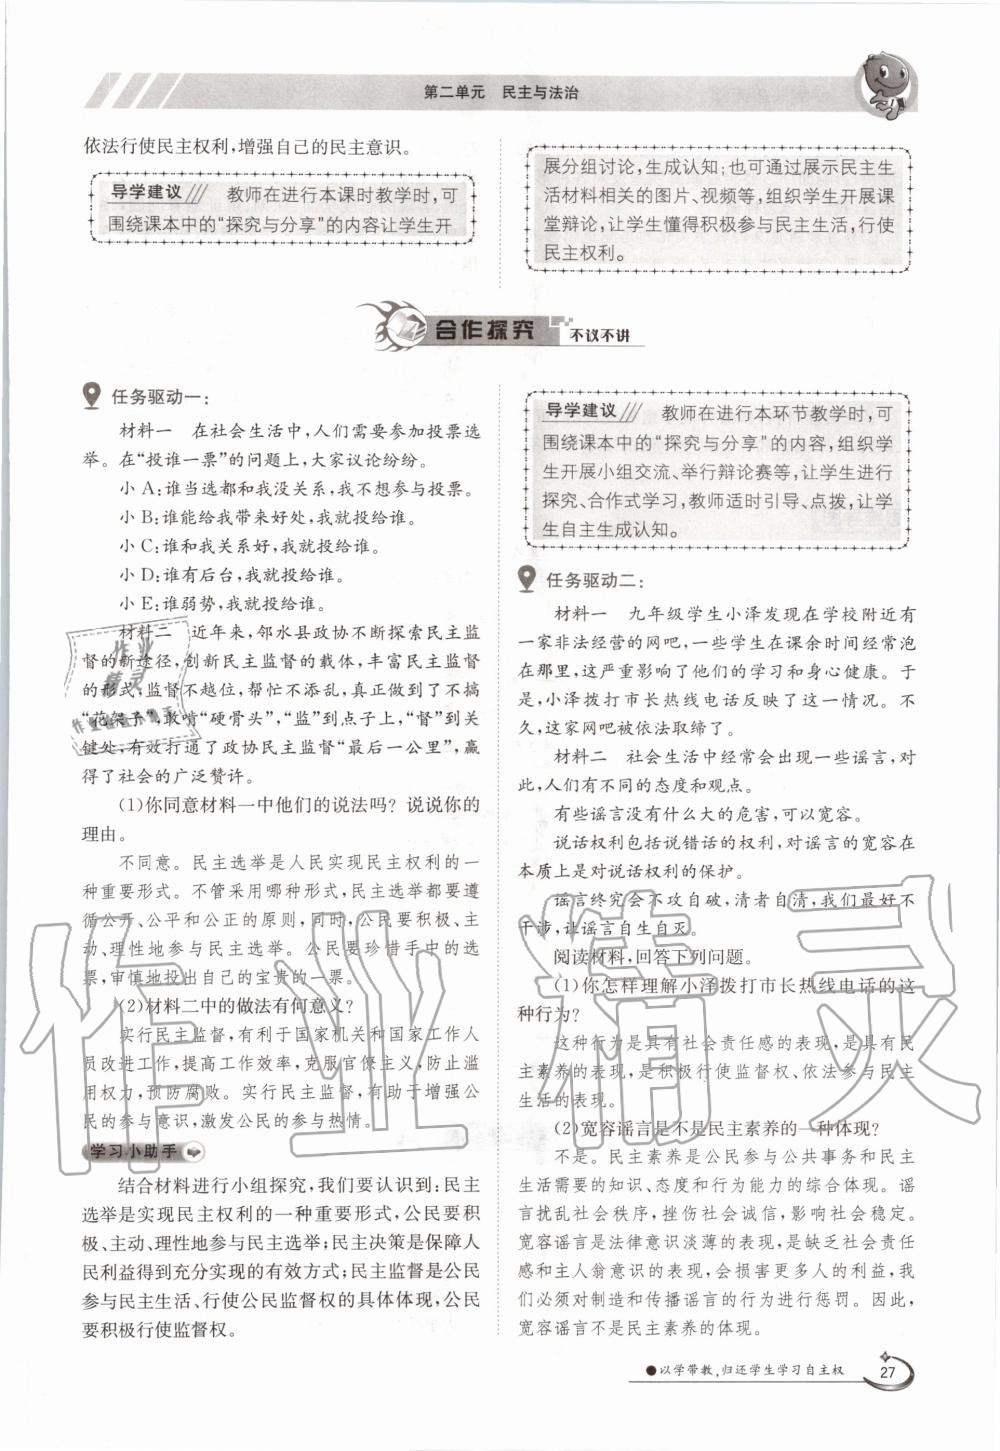 第二单元　民主与法治
依法行使民主权利，增强自己的民主意识。
导学建议　教师在进行本课时教学时，可
围绕课本中的“探究与分享”的内容让学生开
展分组讨论，生成认知；也可通过展示民主生
活材料相关的图片、视频等，组织学生开展课
堂辩论，让学生懂得积极参与民主生活，行使
民主权利。
合作探究　不议不讲
任务驱动一：
材料一　在社会生活中，人们需要参加投票选
举。在“投谁一票”的问题上，大家议论纷纷。
小A：谁当选都和我没关系，我不想参与投票。
小B：谁能给我带来好处，我就投给谁。
小C：谁和我关系好，我就投给谁。
小D：谁有后台，我就投给谁。
小E：谁弱势，我就投给谁。
材料二　近年来，邻水县政协不断探索民主监
督的新途径，创新民主监督的载体，丰富民主监督
的形式，监督不越位，帮忙不添乱，真正做到了不搞
“花架子”，敢啃“硬骨头”，“监”到点子上，“督”到关
键处，有效打通了政协民主监督“最后一公里”，赢
得了社会的广泛赞许。
(1)你同意材料一中他们的说法吗？说说你的
理由。
不同意。民主选举是人民实现民主权利的一
种重要形式。不管采用哪种形式，民主选举都要遵
循公开、公平和公正的原则，同时，公民要积极、主
动、理性地参与民主选举。公民要珍惜手中的选
票，审慎地投出自己的宝贵的一票。
(2)材料二中的做法有何意义？
实行民主监督，有利于国家机关和国家工作人
员改进工作，提高工作效率，克服官僚主义，防止滥
用权力，预防腐败。实行民主监督，有助于增强公
民的参与意识，激发公民的参与热情。
学习小助手
结合材料进行小组探究，我们要认识到：民主
选举是实现民主权利的一种重要形式，公民要积
极、主动、理性地参与民主选举；民主决策是保障人
民利益得到充分实现的有效方式；民主监督是公民
参与民主生活、行使公民监督权的具体体现，公民
要积极行使监督权。
导学建议　教师在进行本环节教学时，可
围绕课本中的“探究与分享”的内容，组织学
生开展小组交流、举行辩论赛等，让学生进行
探究、合作式学习，教师适时引导、点拨，让学
生自主生成认知。
任务驱动二：
材料一　九年级学生小泽发现在学校附近有
一家非法经营的网吧，一些学生在课余时间经常泡
在那里，这严重影响了他们的学习和身心健康。于
是，小泽拨打市长热线电话反映了这一情况。不
久，这家网吧被依法取缔了。
材料二　社会生活中经常会出现一些谣言，对
此，人们有不同的态度和观点。
有些谣言没有什么大的危害，可以宽容。
说话权利包括说错话的权利，对谣言的宽容在
本质上是对说话权利的保护。
谣言终究会不攻自破，清者自清，我们最好不
干涉，让谣言自生自灭。
阅读材料，回答下列问题。
(1)你怎样理解小泽拨打市长热线电话的这
种行为？
这种行为是具有社会责任感的表现，是具有民
主素养的表现，是积极行使监督权、依法参与民主
生活的表现。
(2)宽容谣言是不是民主素养的一种体现？
不是。民主素养是公民参与公共事务和民主
生活需要的知识、态度和行为能力的综合体现。谣
言扰乱社会秩序，挫伤社会诚信，影响社会稳定。
宽容谣言是法律意识淡薄的表现，是缺乏社会责任
感和主人翁意识的表现，会损害更多人的利益，我
们必须对制造和传播谣言的行为进行惩罚。因此，
宽容谣言不是民主素养的体现。
●以学带教，归还学生学习自主权
27
作业精灵
作业
精灵